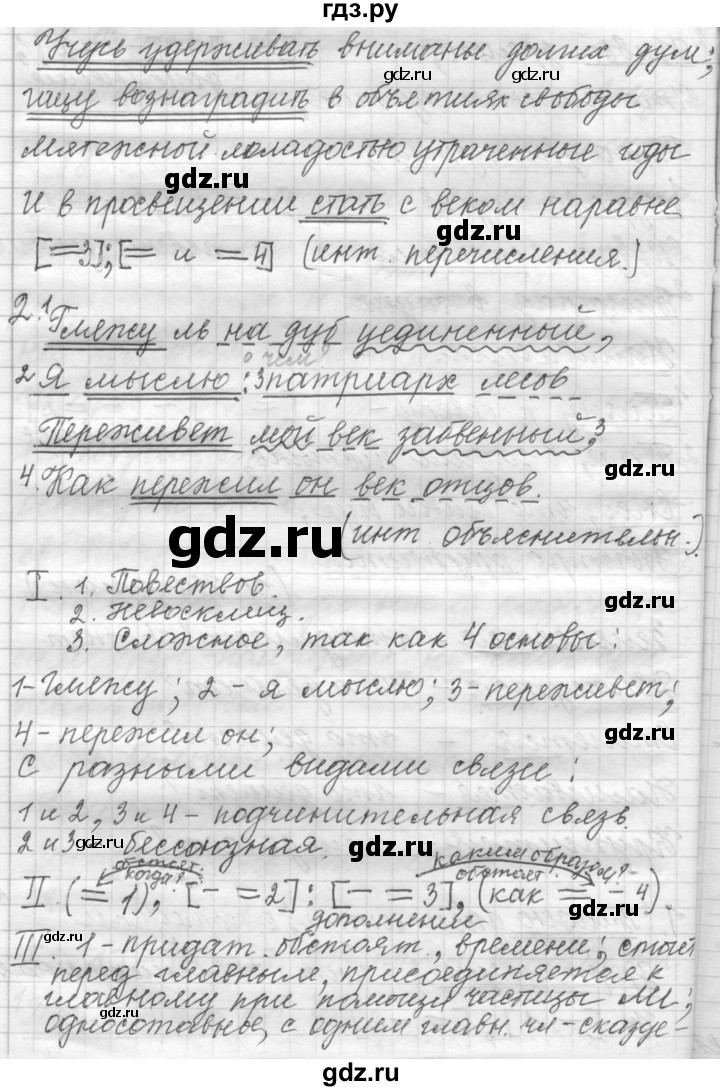 гдз.ру
Учусь удерживать вниманье долгих дум;
gdz.ru gdz.ru
Ищу вознаградить в объятиях свободы
Мятежной младостью утраченные годы
gdz.ru gdz.ru
И в просвещении стать с веком наравне
[=3];[= и =4] (инт. перечисления.)
gdz.ru
2.1 Гляжу ль на дуб уединенный,
о чем?
2 Я мыслю: 3 патриарх лесов
gdz.ru
Переживет мой век забвенный, 3
gdz.ru
4. Как пережил он век отцов.
gdz.ru
(инт. объяснительн.).
I. 1. Повествов.
2. Невосклиц.
gdz.ru gdz.ru
3. Сложное, так как 4 основы:
1-Гляжу; 2 - я мыслю; 3-переживет;
4- пережил он;
gdz.ru
С разными видами связи:
1 и 2, 3 и 4 - подчинительная связь.
2 и 3 - бессоюзная.
gdz.ru gdz.ru
обстоят. каким образом?
когда? обстоят.
II (= 1), [- =2]: [- =3], (как = - 4).
gdz.ru
дополнение
III. 1- придат. обстоят, времени; стоит
перед главным, присоединяется к
главному при помощи частицы ЛИ;
односотавное, с одним главн. чл-сказуе-
gdz.ru gdz.ru